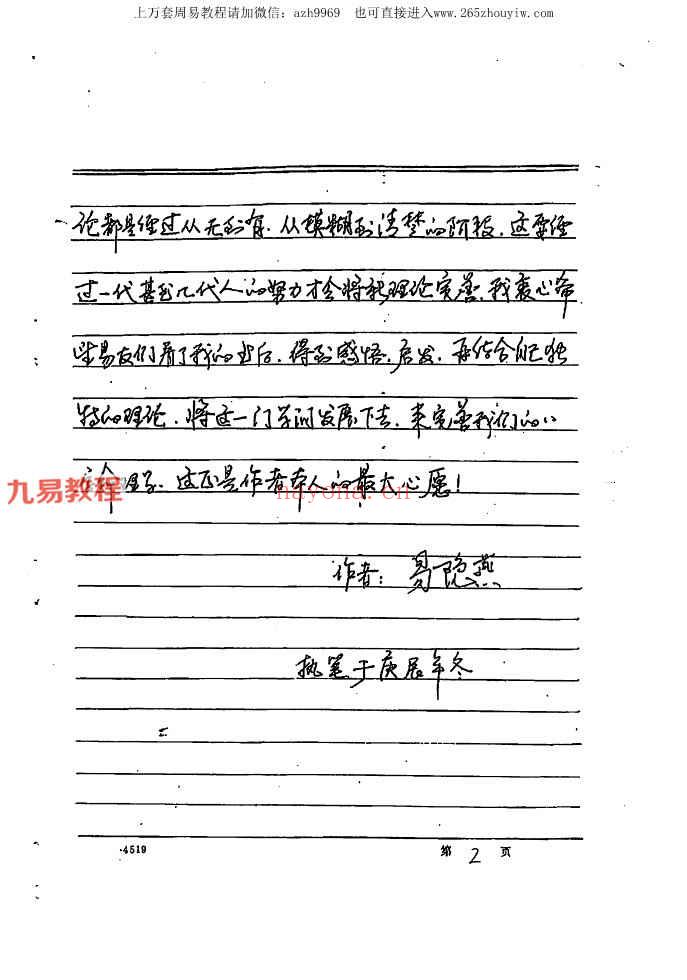 上万套周易教程请加微信：azh9969 也可直接进入www.265zhouyiw.com
论都是经过从无到有、从模糊到清楚的阶段，这要经
过一代甚至几代人的努力才会将理论完善，我衷心希
望易友们看了我的书后，得到感悟、启发，再结合自己独
特的理论，将这一门学问发展下去，来完善我们的八
命理学，这正是作者本人的最大心愿！
九易教程
nayona.cn
作者：易隐燕
执笔于庚辰年冬
4519
第 2 页